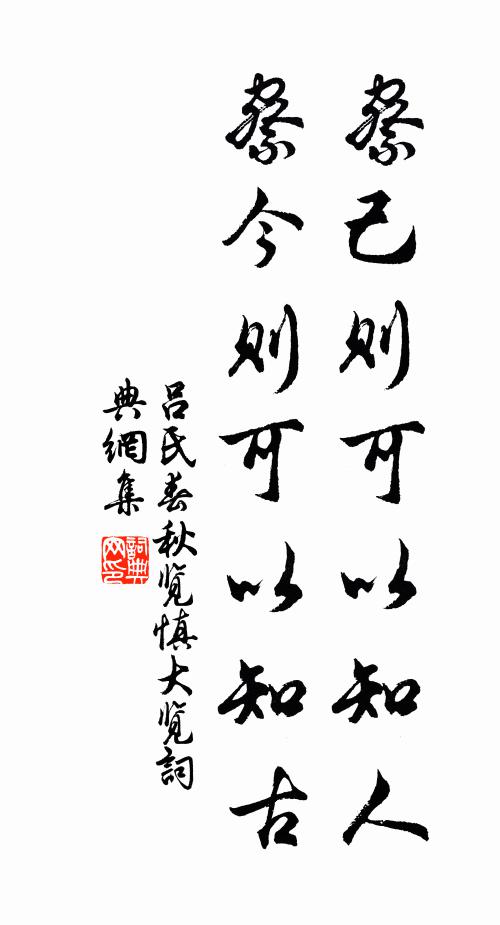 察己则可以知人
察今则可以知古
吕氏春秋览慎大览词
典網集
詞典網印